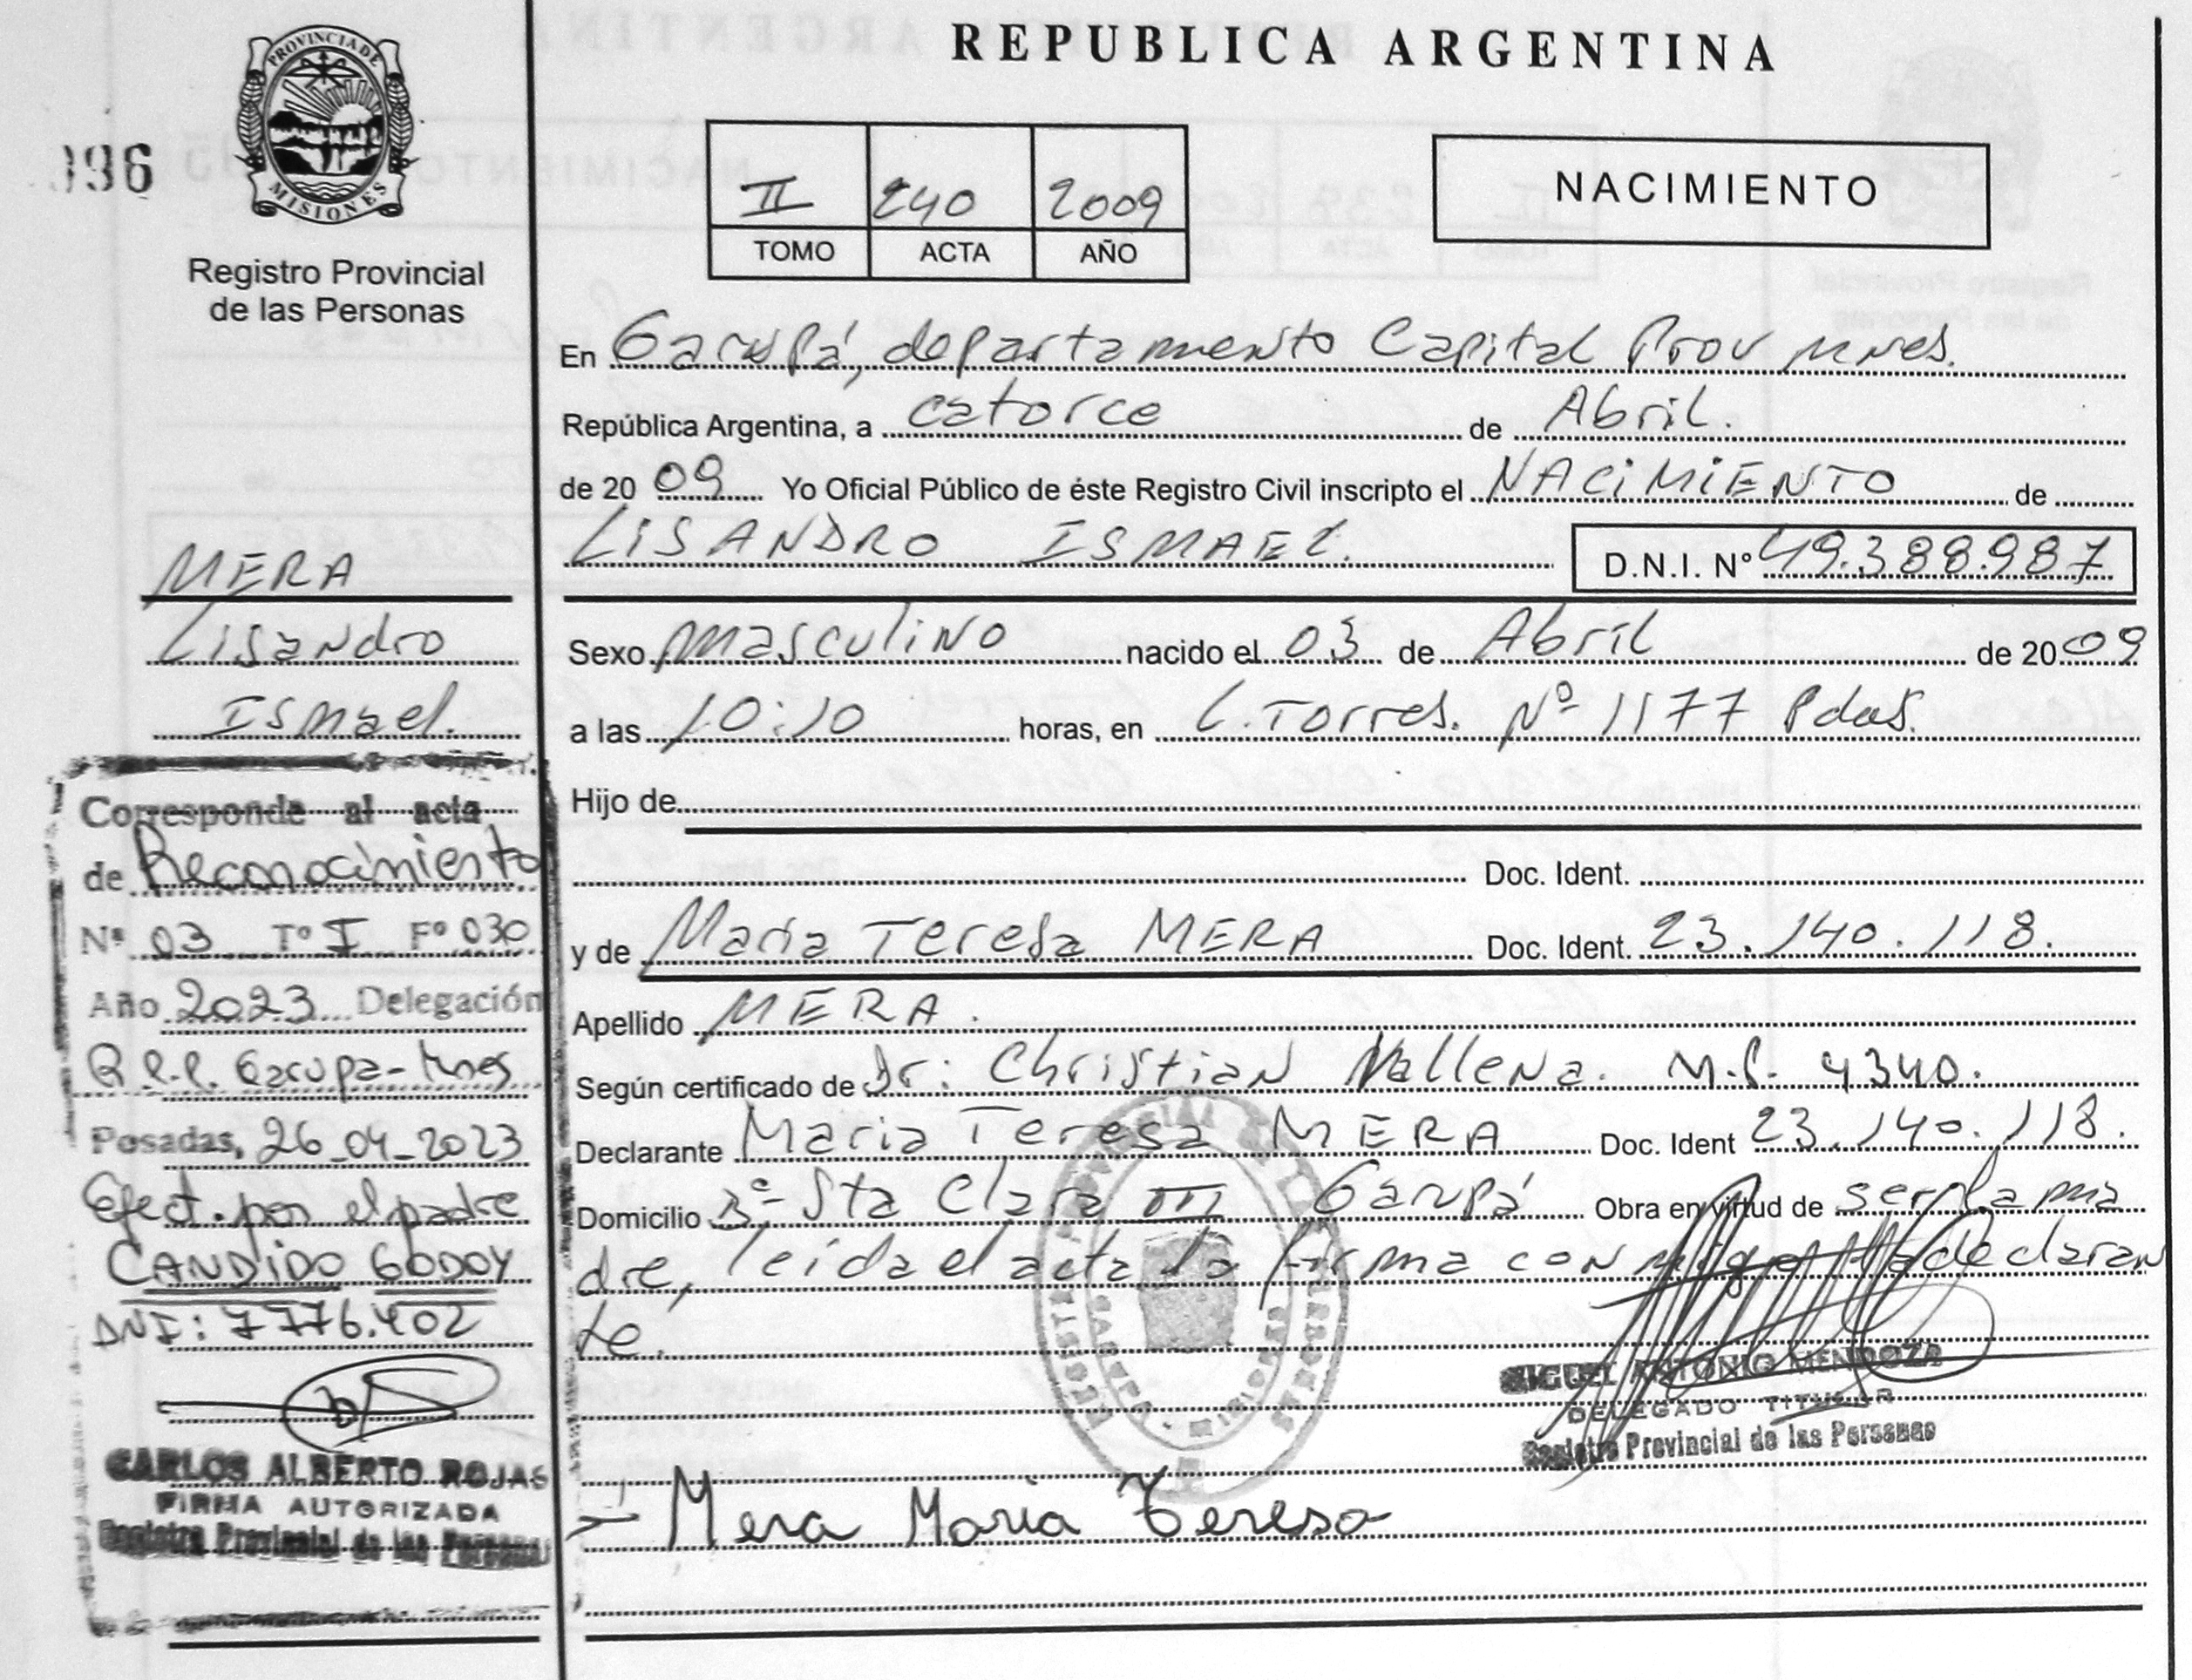 REPUBLICA ARGENTINA
PROVINCIA DE
MISIONES
196
Registro Provincial
de las Personas
II 240 2009
TOMO ACTA AÑO
NACIMIENTO
En Garupá, departamento Capital Prov Mnes.
República Argentina, a catorce de Abril.
de 20 09 Yo Oficial Público de éste Registro Civil inscripto el NACIMIENTO de
LISANDRO ISMAEL. D.N.I. Nº 49.388.987
Sexo masculino nacido el 03 de Abril de 2009
a las 10:10 horas, en L. Torres. Nº 1177 Pdas.
Hijo de
Doc. Ident.
y de Maria Teresa MERA Doc. Ident. 23.140.118.
Apellido MERA.
Según certificado de Dr: Christian Vallena. M.P. 4340.
Declarante Maria Teresa MERA Doc. Ident 23.140.118.
Domicilio Bº Sta Clara III Garupá Obra en virtud de ser la ma
dre, leida el acta la firma conmigo la declaran
te.
MIGUEL ANTONIO MENDOZA
DELEGADO TITULAR
Registro Provincial de las Personas
Mera Maria Teresa
MERA
Lisandro
Ismael.
Corresponde al acta
de Reconocimiento
Nº 03 Tº I Fº 030
Año 2023 Delegación
R.P.P. Garupa-Mnes
Posadas, 26-04-2023
Efect. por el padre
CANDIDO GODOY
DNI: 7776.402
CARLOS ALBERTO ROJAS
FIRMA AUTORIZADA
Registro Provincial de las Personas